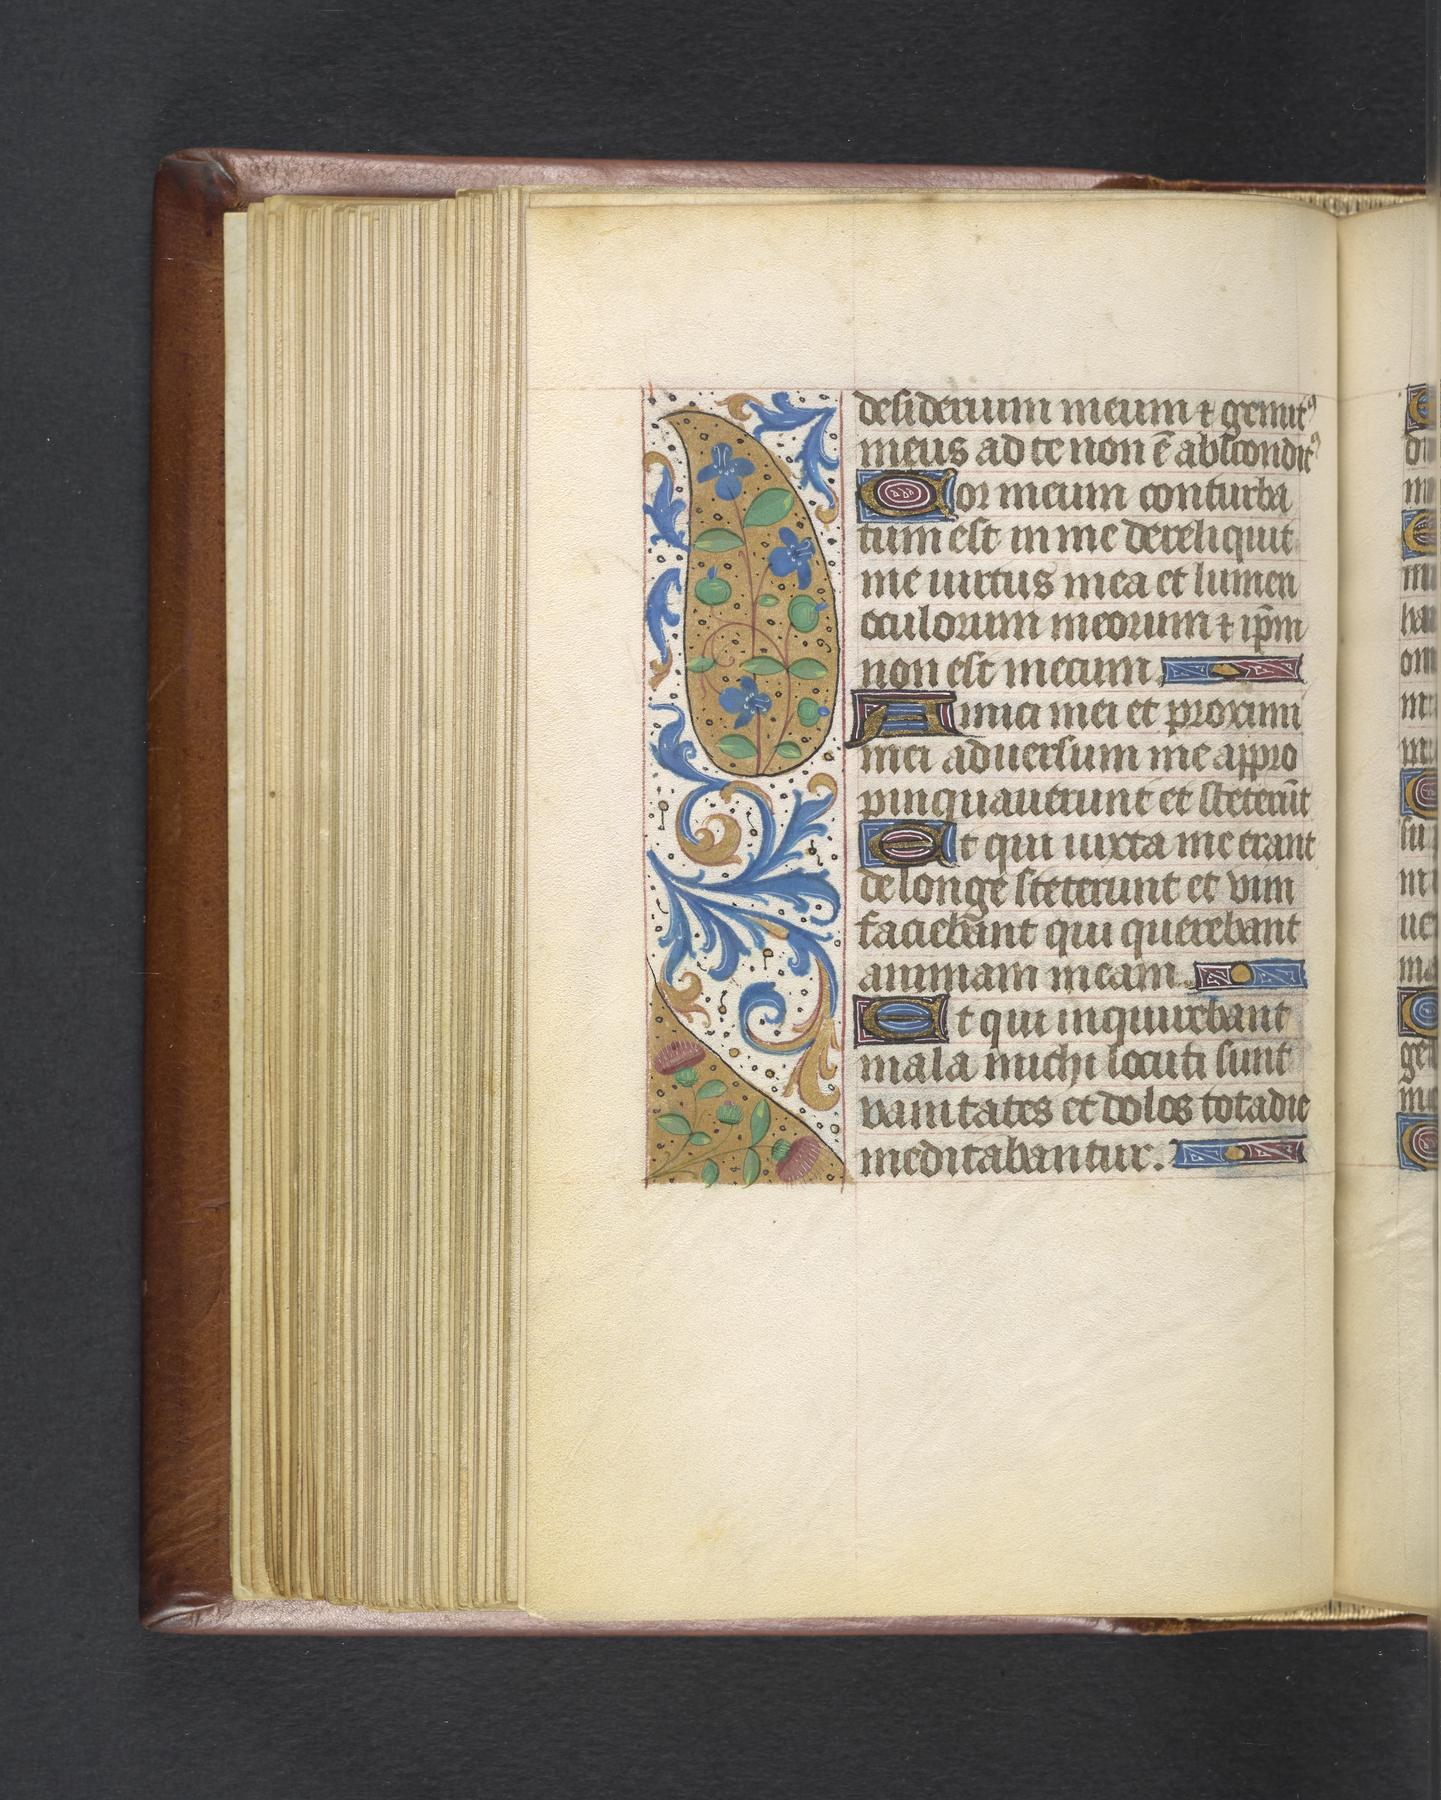 desiderium meum ⁊ gemitꝰ
meus ad te non ē absconditꝰ
Cor meum conturba
tum est in me dereliquit
me uirtus mea et lumen
oculorum meorum ⁊ ip̄m
non est mecum.
Amici mei et proximi
mei aduersum me appro
pinquauerunt et steterūt
Et qui iuxta me erant
de longe steterunt et vim
faciebant qui querebant
animam meam.
Et qui inquirebant
mala michi locuti sunt
vanitates et dolos tota die
meditabantur.